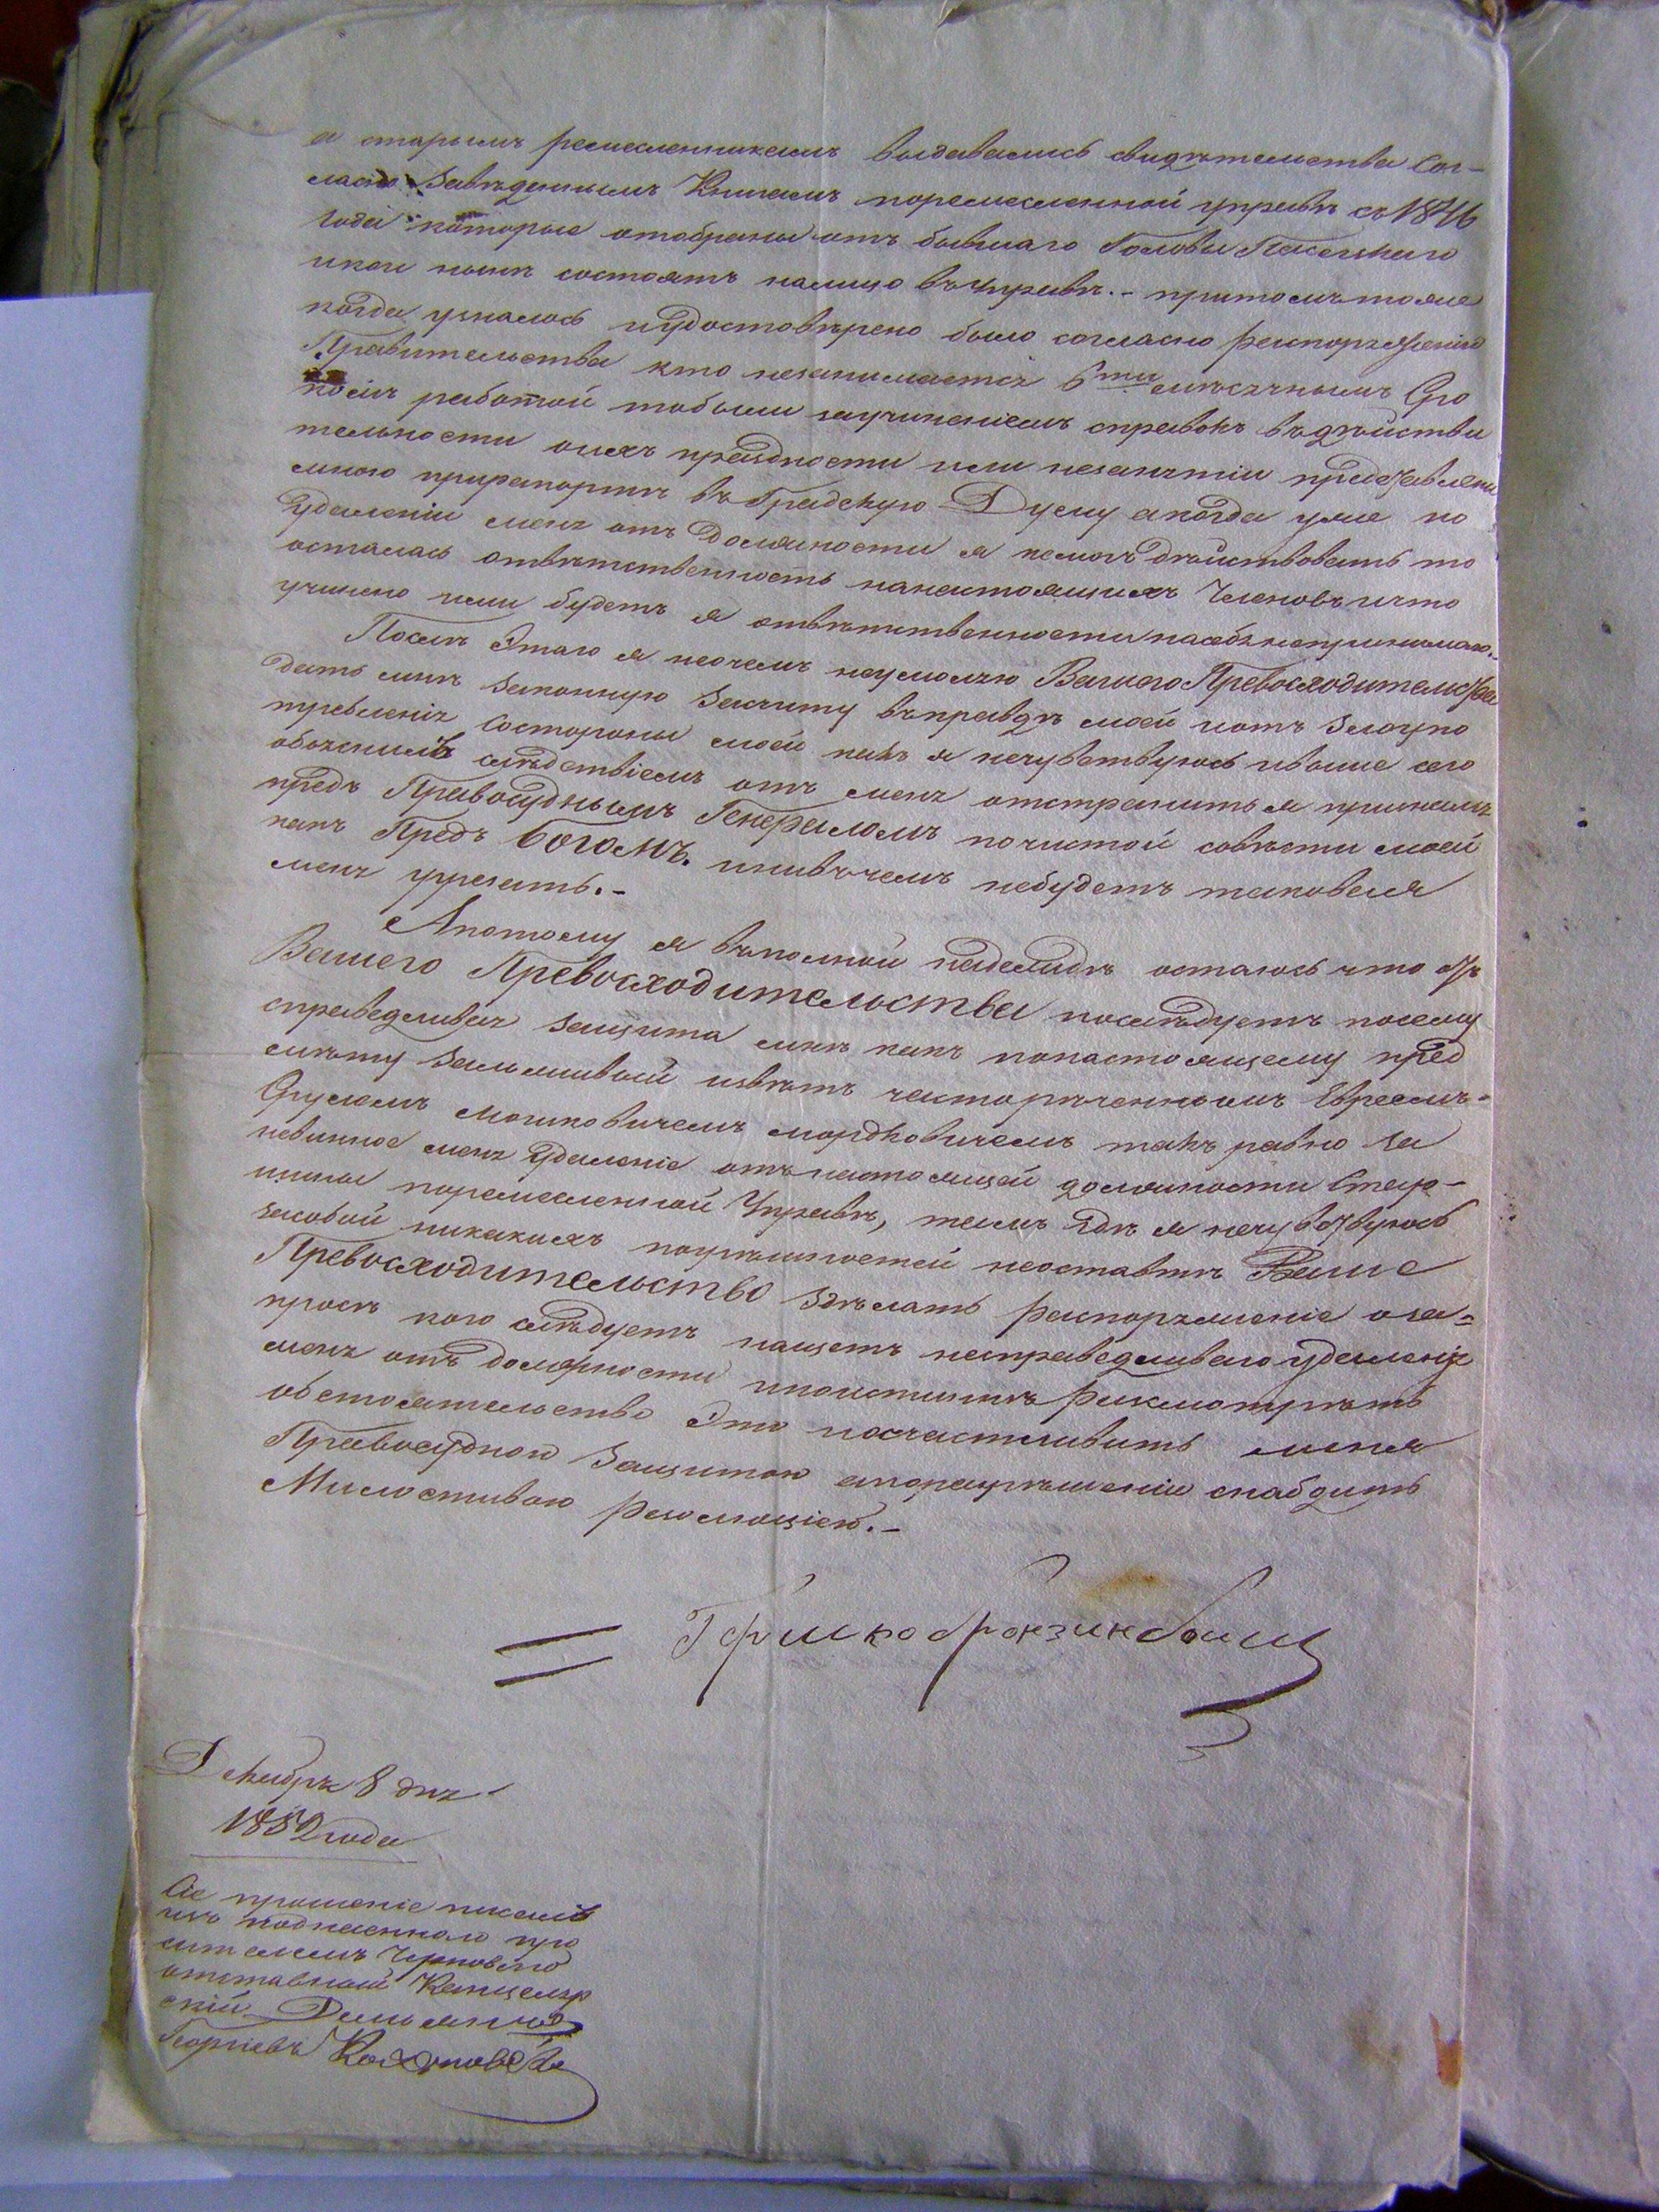 а старымъ ремесленникамъ выдавались свидѣтельства сог-
ласно заведеннымъ Книгамъ поремесленной управѣ съ 1846
года которые отобраны отъ бывшаго Головы
икои нынѣ состоятъ налицо въ Управѣ.- притомъ тояже
когда узналось иудостовѣрено было согласно распоряженію
Правительства кто незанимается 6ти мѣсячнымъ Сро
комъ работой тобыли заучиненіемъ справокъ въдѣйстви
тельности оихъ праздности или незанятіи представлены
мною прирапортѣ въ Градскую Думу акогда уже по
удаленіи меня отъ Должности я немогъ дѣйствовать то
осталась отвѣтственность нанастоящихъ Членовъ ичто
учинено ими будетъ я отвѣтственности насебя непринимаю.-
Послѣ Этаго я неочемъ неумоляю Вашего Превосходительства
дать мнѣ законную Защиту въправдѣ моей иотъ Злоупо
требленія Состороны моей какъ я нечувствуюсь ивыше сего
объяснилъ слѣдствіемъ отъ меня отстранить я принялъ
предъ Правосуднымъ Генераломъ почистой совѣсти моей
какъ Предъ Богомъ. инивъчемъ небудетъ таковыя
меня
Апотому я въполной надеждѣ остаюсь что отъ
Вашего Превосходительства послѣдуетъ посему
справедливая защита мнѣ какъ понастоящему пред
мѣту Залживый извѣтъ часторѣченнымъ Евреемъ-
Срулемъ Мошковичемъ мордковичемъ такъ равно за
невинное меня Удаленіе отънастоящей должности Стар-
шины поремесленной Управѣ, темъ гдѣ я нечувствуюсь
засобой никакихъ погрѣшностей неоставитъ Ваше
Превосходительство Здѣлать распоряженіе оза=
просѣ кого слѣдуетъ нащетъ несправедливаго удаленія
меня отъ должности ипоистинѣ расмотрѣть
обстоятельство Это иосчастливить меня
Правосудною Защитою апоразрѣшеніи снабдить
Милостивою резолюціею.-
Декабря 8 дня
1852 года
Сіе прошеніе писалъ
изъ поднесеннаго про
сителемъ Черноваго
отставный Канцеляр
скій Демьянъ
Георгіевъ